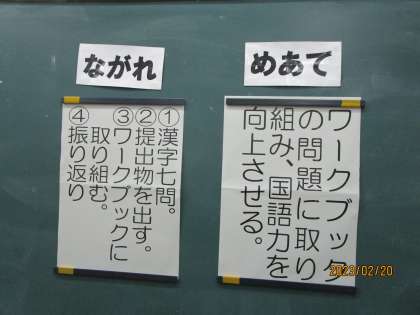 めあて
ワークブック
の問題に取り
組み、国語力を
向上させる。
ながれ
①漢字七問。
②提出物を出す。
③ワークブックに
取り組む。
④振り返り
2023/02/20